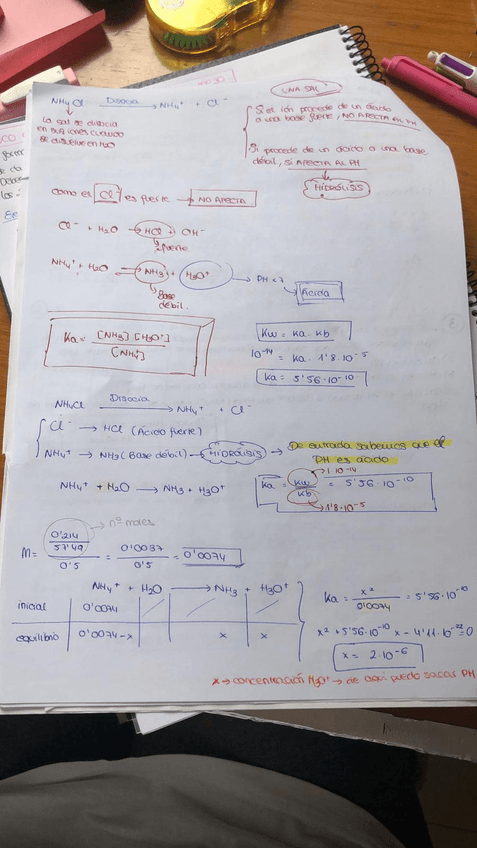 UNA SAL
NH4Cl Disocia → NH4+ + Cl-
La sal se disocia
en sus iones cuando
se disuelve en H2O
Si el ión procede de un ácido
o una base fuerte, NO AFECTA AL PH
Si procede de un ácido o una base
débil, SI AFECTA AL PH
HIDRÓLISIS
como el Cl- es fuerte → NO AFECTA
Cl- + H2O → HCl + OH-
fuerte
NH4+ + H2O ⇌ NH3 + H3O+ → PH < 7
Ácida
Base
débil.
Ka = [NH3] [H3O+] / [NH4+]
Kw = Ka · Kb
10-14 = Ka · 1'8·10-5
Ka = 5'56·10-10
NH4Cl Disocia → NH4+ + Cl-
Cl- → HCl (Ácido fuerte)
NH4+ → NH3 (Base débil) → HIDRÓLISIS → De entrada sabemos que el
PH es ácido
NH4+ + H2O → NH3 + H3O+
Ka = Kw / Kb = 5'56·10-10
1·10-14
1'8·10-5
nº moles
M = 0'214 / 57'49 / 0'5 = 0'0037 / 0'5 = 0'0074
NH4+ + H2O → NH3 + H3O+
inicial 0'0074
equilibrio 0'0074-x x x
Ka = x2 / 0'0074 = 5'56·10-10
x2 + 5'56·10-10 x - 4'11·10-12 = 0
x = 2·10-6
x → concentración H3O+ → de aquí puedo sacar PH